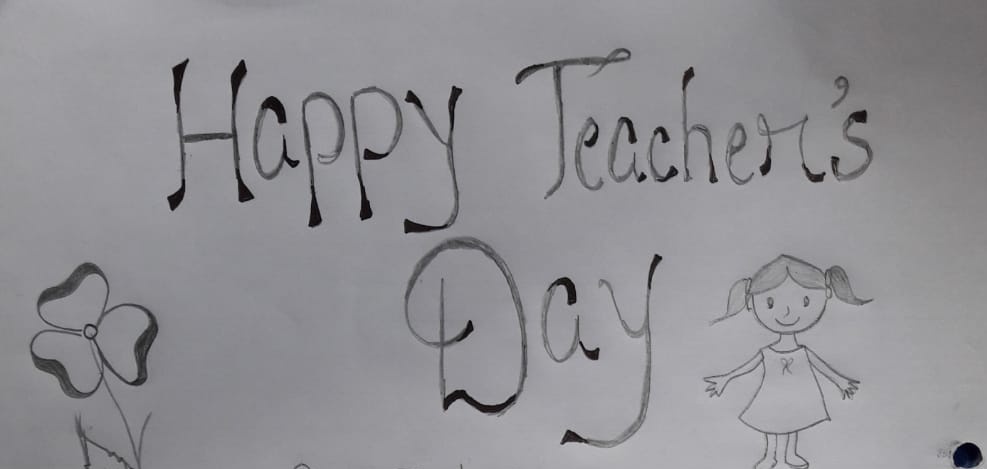 Happy Teacher's
Day